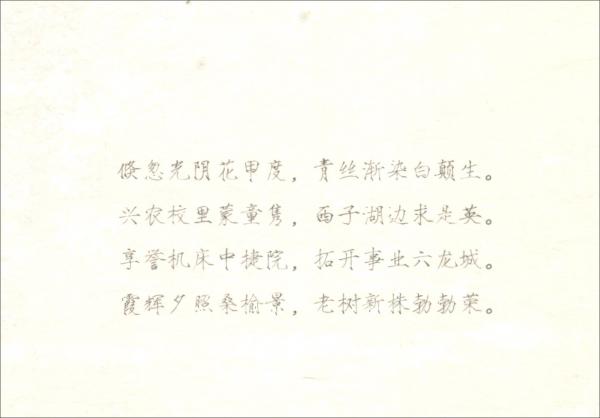 倏忽光阴花甲度，青丝渐染白颠生。
兴农校里蒙童隽，西子湖边求是英。
享誉机床中捷院，拓开事业六龙城。
霞辉夕照桑榆景，老树新株勃勃荣。